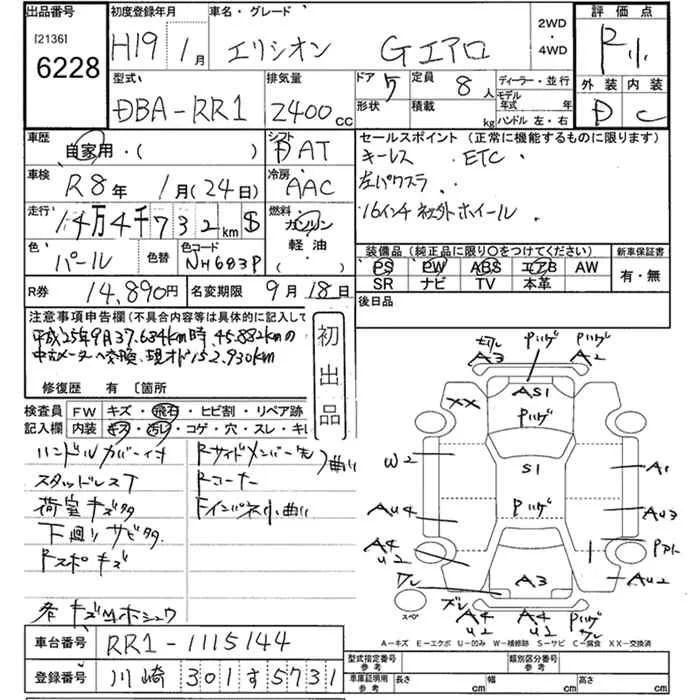 出品番号
[2136]
6228
初度登録年月
H19 1月
車名・グレード
エリシオン Gエアロ
2WD
・
4WD
評価点
R小
外装 内装
D C
型式
DBA-RR1
排気量
2400 CC
ドア 5
形状
定員 8人
積載 kg
ディーラー・並行
モデル年式 年
ハンドル 左・右
車歴
自家用・( )
シフト
DAT
セールスポイント (正常に機能するものに限ります)
キーレス . ETC.
左パワスラ.
16インチ社外ホイール.
車検
R8年 1月(24日)
冷房
AAC
走行
14万4千732km $
燃料
ガソリン
軽油
( )
色
パール
色替
色コード
NH683P
装備品 (純正品に限り○をつけてください)
PS PW ABS エアB AW
SR ナビ TV 本革
新車保証書
有・無
R券 14,890円
名変期限 9月18日
後日品
注意事項申告欄(不具合内容等は具体的に記入して
平成25年9月37.634km時、45.882kmの
中古メーターへ交換、現オド152.930km
修復歴 有 〔箇所
初出品
検査員記入欄
FW キズ・飛石・ヒビ割・リペア跡
内装 キズ・汚レ・コゲ・穴・スレ・キレ
ハンドルカバー付
スタッドレスT
荷室キズ多
下廻りサビ多
Rスポキズ
各キズM ホシュウ
Rサイドメンバー先
Rコーナー
曲い
Fインパネ小曲い
切レ
A3
Pハゲ
A2
XX
AS1
Pハゲ
W2
S1
A1
AU4
Pハゲ
AU3
A4
U2
Pアト
ワレ
A3
AU2
ズレ
A4
U2
A4
U2
Pハゲ
スペア
A－キズ E－エクボ U－凹み W－補修跡 S－サビ C－腐食 XX－交換済
車台番号 RR1-1115144
登録番号 川崎 301 す 5731
型式指定番号
参考
類別区分番号
参考
車庫証明用
参考
長さ cm
幅 cm
高さ cm